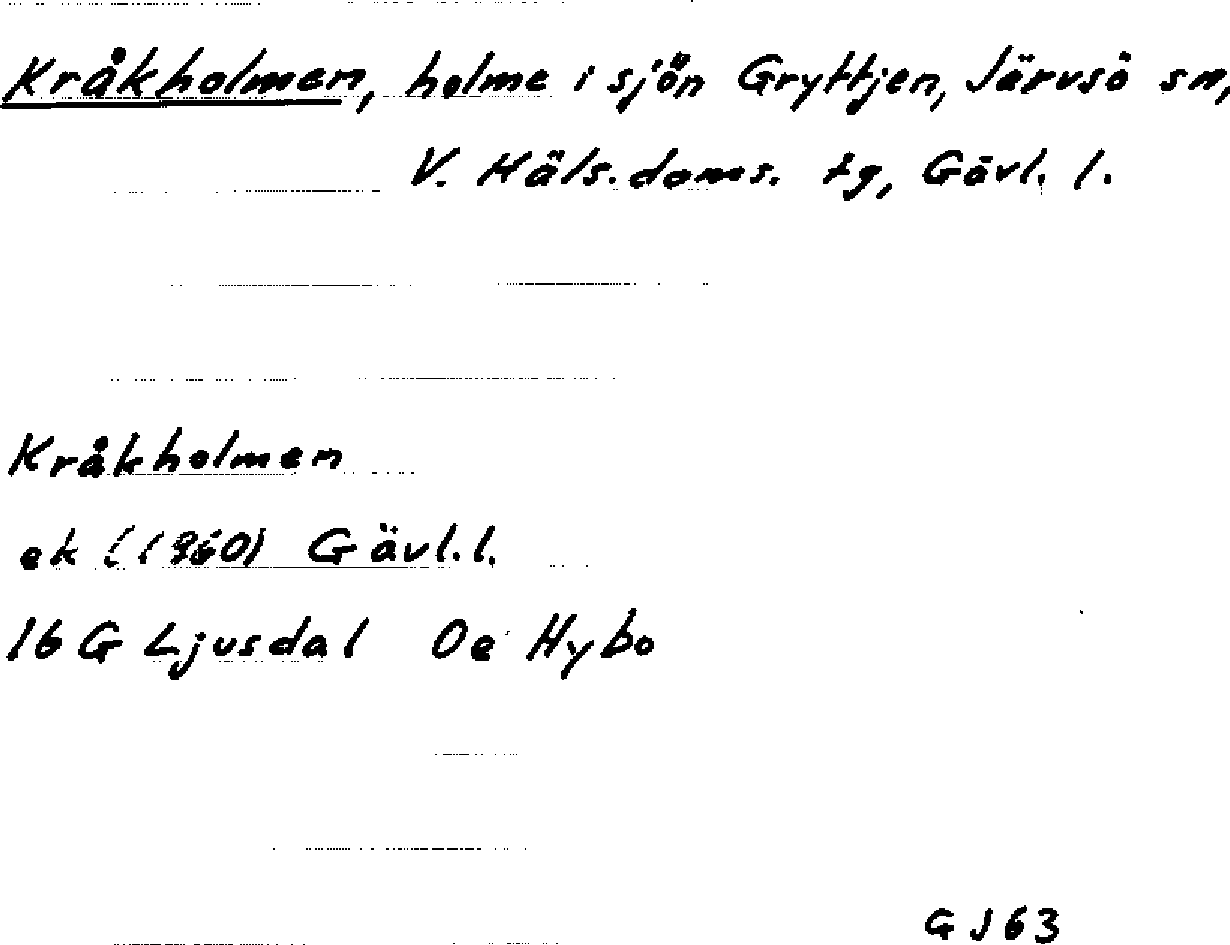 Kråkholmen, holme i sjön Gryttjen, Järvsö sn,
V. Häls. doms. tg, Gävl. l.
Kråkholmen
ek (1960) Gävl. l.
16 G Ljusdal 0e Hybo
GJ 63